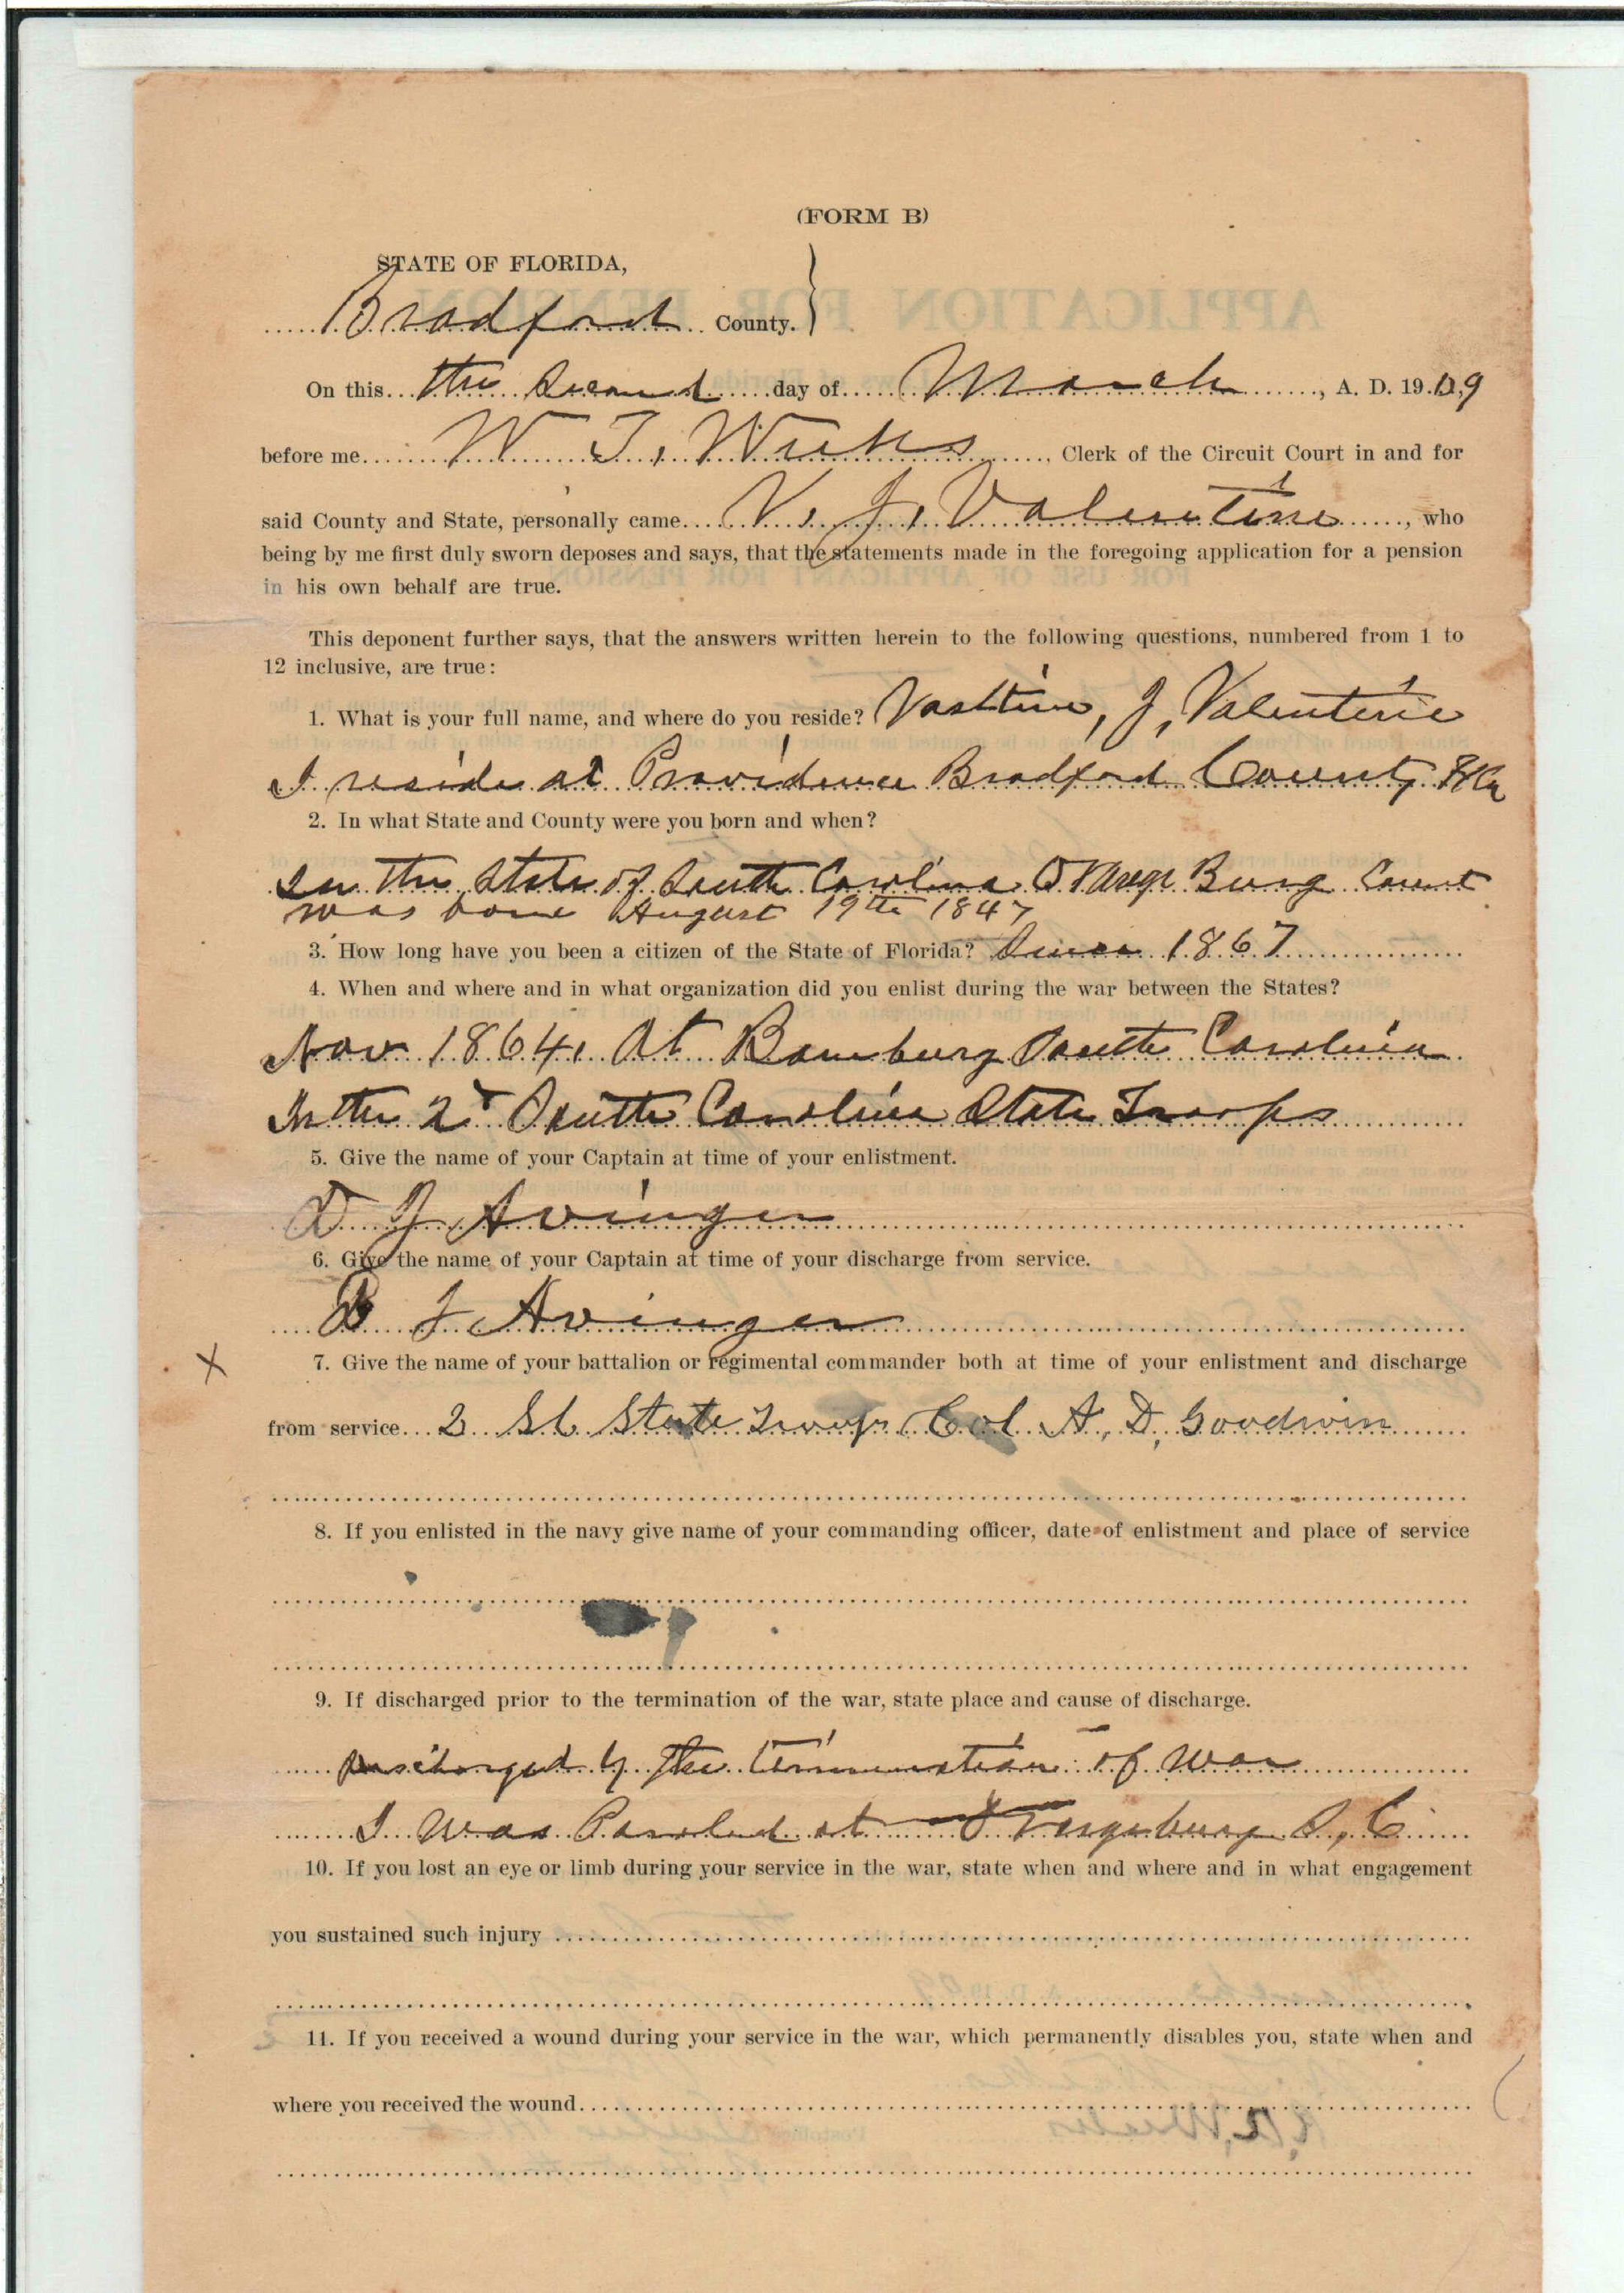 (FORM B)
STATE OF FLORIDA,
Bradford County.
On this the second day of March, A. D. 1909
before me W. T. Weeks, Clerk of the Circuit Court in and for
said County and State, personally came V. J. Valentine, who
being by me first duly sworn deposes and says, that the statements made in the foregoing application for a pension
in his own behalf are true.
This deponent further says, that the answers written herein to the following questions, numbered from 1 to
12 inclusive, are true:
1. What is your full name, and where do you reside? J, Valentine
I reside at Providence Bradford County Fla
2. In what State and County were you born and when?
In the State of South Carolina Orange Burg Count
was born August 19th 1847
3. How long have you been a citizen of the State of Florida? Since 1867
4. When and where and in what organization did you enlist during the war between the States?
Nov 1864, At Bamburg South Carolina
In the 2d South Carolina State Troops
5. Give the name of your Captain at time of your enlistment.
D J Avinger
6. Give the name of your Captain at time of your discharge from service.
D J Avinger
X
7. Give the name of your battalion or regimental commander both at time of your enlistment and discharge
from service 2 SC State Troops Col A, D, Goodwin
8. If you enlisted in the navy give name of your commanding officer, date of enlistment and place of service
9. If discharged prior to the termination of the war, state place and cause of discharge.
Discharged by the termination of war
I was Paroled at Orangeburg S, C
10. If you lost an eye or limb during your service in the war, state when and where and in what engagement
you sustained such injury
11. If you received a wound during your service in the war, which permanently disables you, state when and
where you received the wound